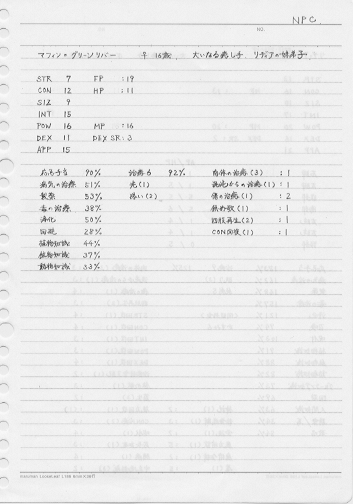 NPC.
NO.
マフィン=グリーンリバー ♀ 16歳. 大いなる癒し手 リディアの姉弟子
STR 7 FP :19
CON 12 HP :11
SIZ 9
INT 15
POW 16 MP :16
DEX 11 DEX SR:3
APP 15
応急手当 90% 治癒6 92% 肉体の治療(3) :1
病気の治療 51% 光(1) (1) :1
観察 53% (2) 傷の治療(1) :2
毒の治療 38% (1) :1
浄化 50% 四肢再生(2) :1
28% CON回復(1) :1
植物知識 44%
鉱物知識 37%
動物知識 33%